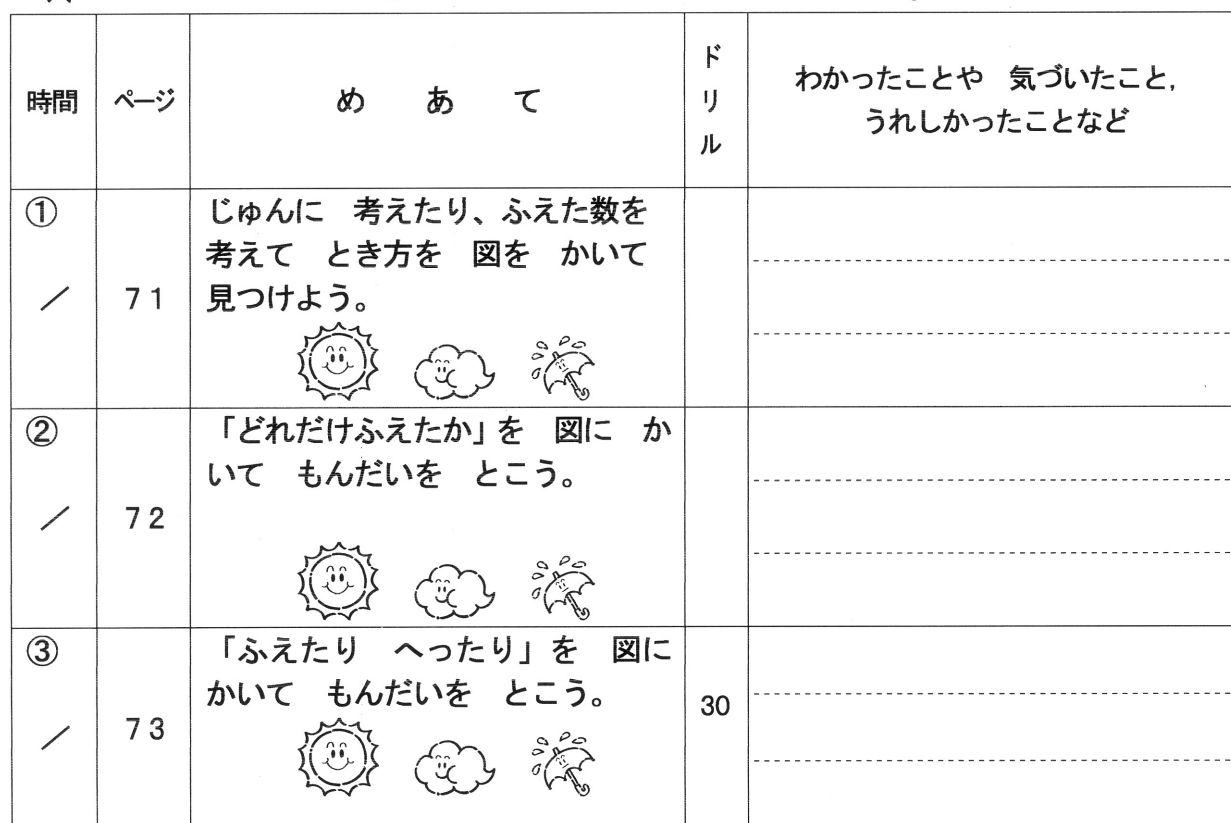 時間 ページ め あ て ドリル わかったことや 気づいたこと,
うれしかったことなど
①
／
71
じゅんに 考えたり、ふえた数を
考えて とき方を 図を かいて
見つけよう。
②
／
72
「どれだけふえたか」を 図に か
いて もんだいを とこう。
③
／
73
「ふえたり へったり」を 図に
かいて もんだいを とこう。
30